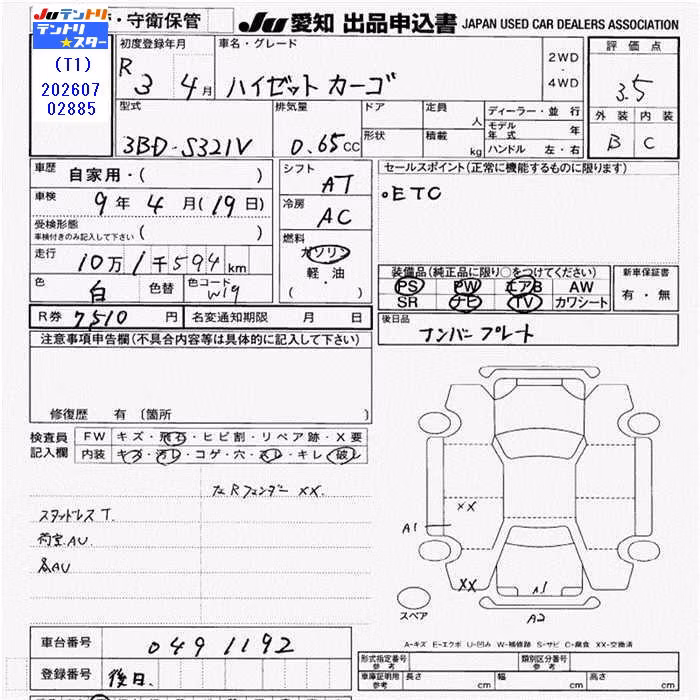 JUテントリ
テントリ
★スター
(T1)
202607
02885
・守衛保管
JU 愛知 出品申込書 JAPAN USED CAR DEALERS ASSOCIATION
初度登録年月
R 3 4月
車名・グレード
ハイゼット カーゴ
2WD
・
4WD
評価点
3.5
外装 内装
B C
型式
3BD-S321V
排気量
0.65CC
ドア
形状
定員
人
積載
kg
ディーラー・並行
モデル年式 年
ハンドル 左・右
車歴
自家用・( )
車検
9年 4月(19日)
受検形態
車検付きのみ記入して下さい ( )
走行
10万1千594km
色
白
色替
色コード
W19
シフト
AT
冷房
AC
燃料
ガソリン
・
軽油
( )
セールスポイント(正常に機能するものに限ります)
。ETC
装備品(純正品に限り○をつけてください)
PS PW エアB AW
SR ナビ TV カワシート
新車保証書
有・無
R券 7510 円
名変通知期限 月 日
後日品
ナンバープレート
注意事項申告欄(不具合内容等は具体的に記入して下さい)
修復歴 有〔箇所 〕
検査員
記入欄
FW キズ・飛石・ヒビ割・リペア跡・X要
内装 キズ・汚レ・コゲ・穴・スレ・キレ・破レ
左Rフェンダー XX.
スタッドレスT.
荷室AU.
各AU
XX
A1
XX
A1
A2
スペア
A-キズ E-エクボ U-凹み W-補修跡 S-サビ C-腐食 XX-交換済
車台番号
0491192
登録番号
後日.
形式指定番号
参考
類別区分番号
参考
車庫証明用
参考
長さ cm 幅 cm 高さ cm